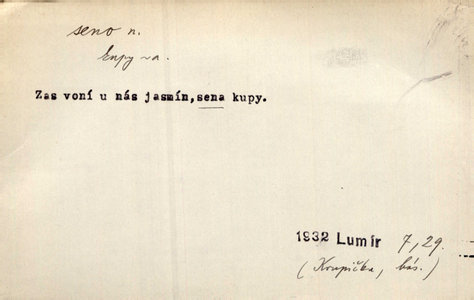 seno n.
kupy ~a.
Zas voní u nás jasmín,sena kupy.
1932 Lumír 7,29.
(Krupička, bás.)